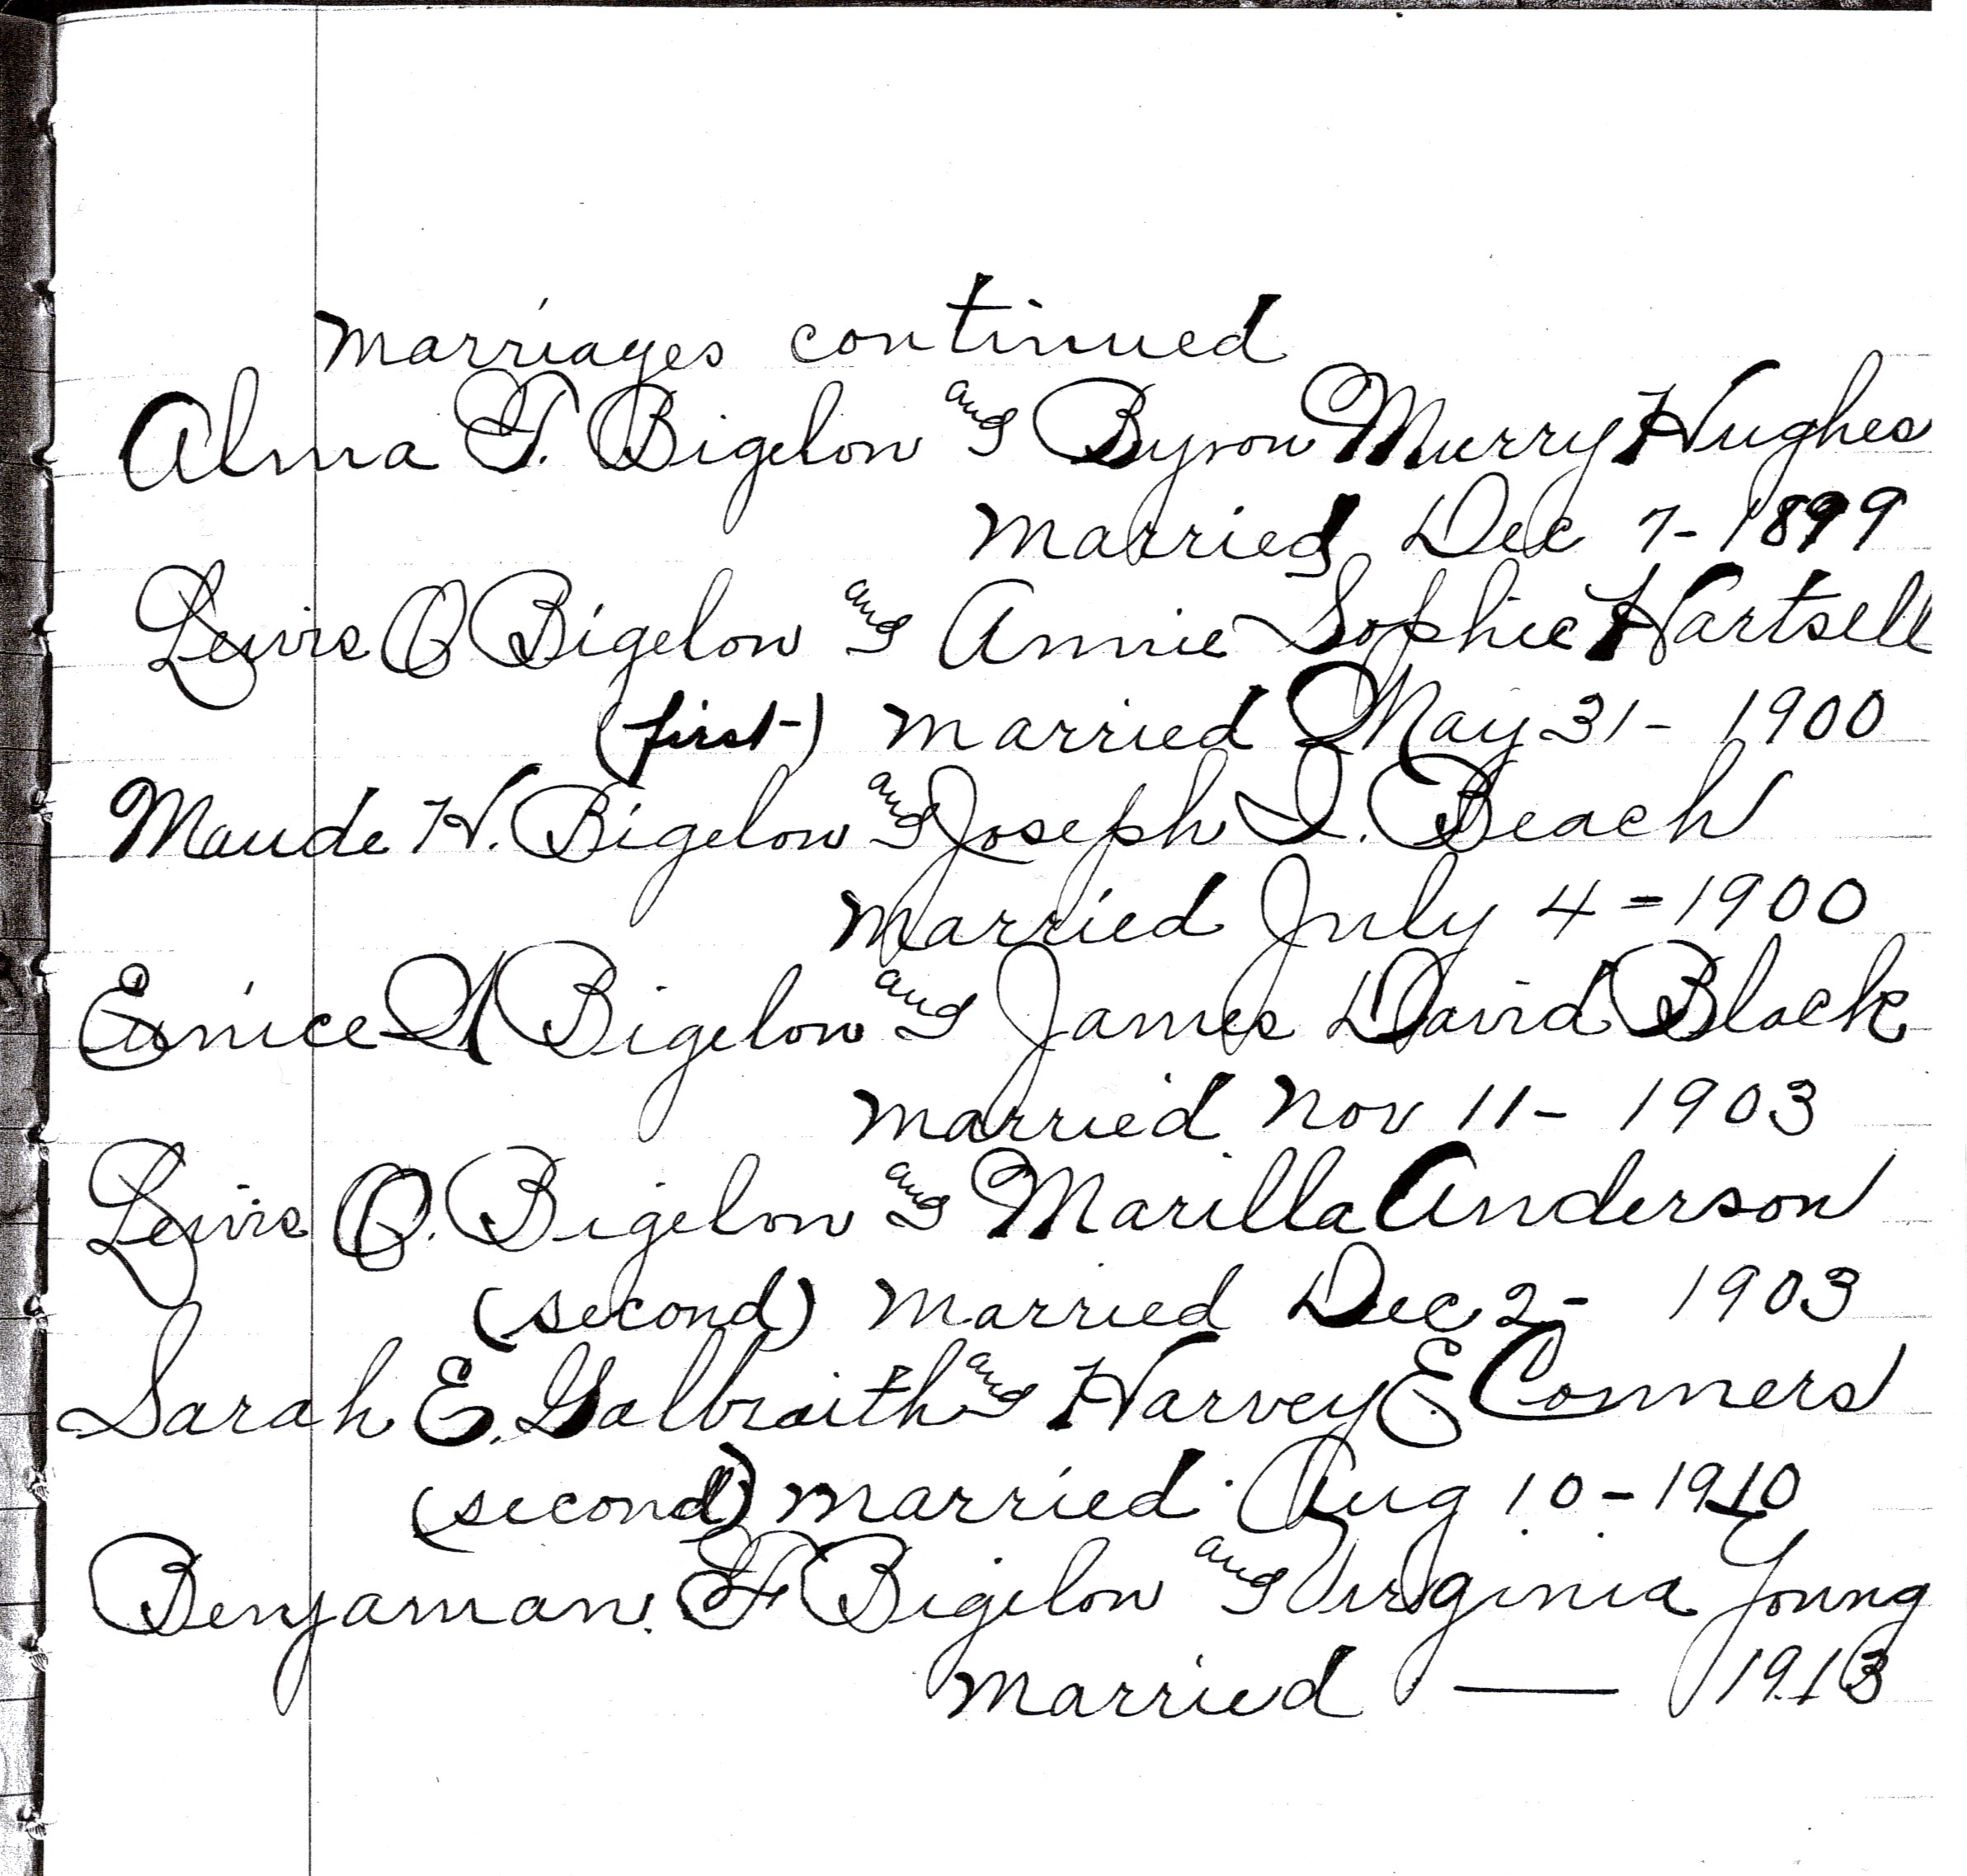 Marriages continued
Alma T. Bigelow and Byron Murry Hughes
Married Dec 7-1899
Lewis O Bigelow and Annie Sophie Hartsell
(first-) Married May 31- 1900
Maude H. Bigelow and Joseph I. Beach
Married July 4-1900
Eunice A Bigelow and James David Black
Married Nov 11- 1903
Lewis O. Bigelow and Marilla Anderson
(second) Married Dec 2- 1903
Sarah E. Galbraith and Harvey E Conners
(second) Married Aug 10-1910
Benjaman F Bigelow and Virginia Young
Married — 1913